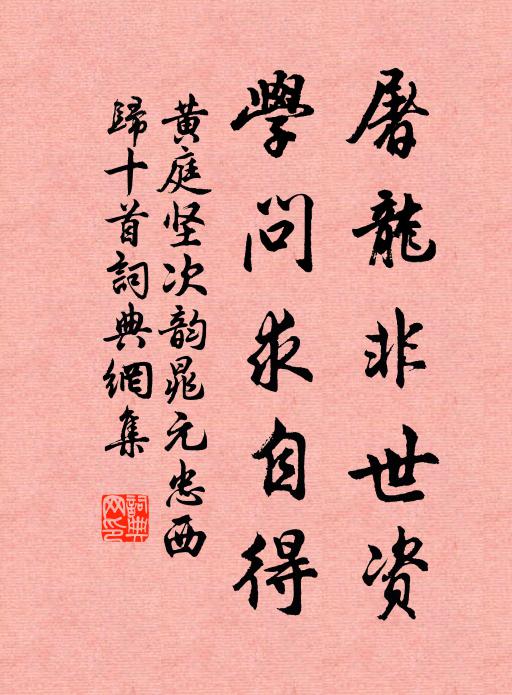 屠龍非世资
學問求自得
黄庭坚次韵晁元忠西
歸十首詞典網集
詞典
网印